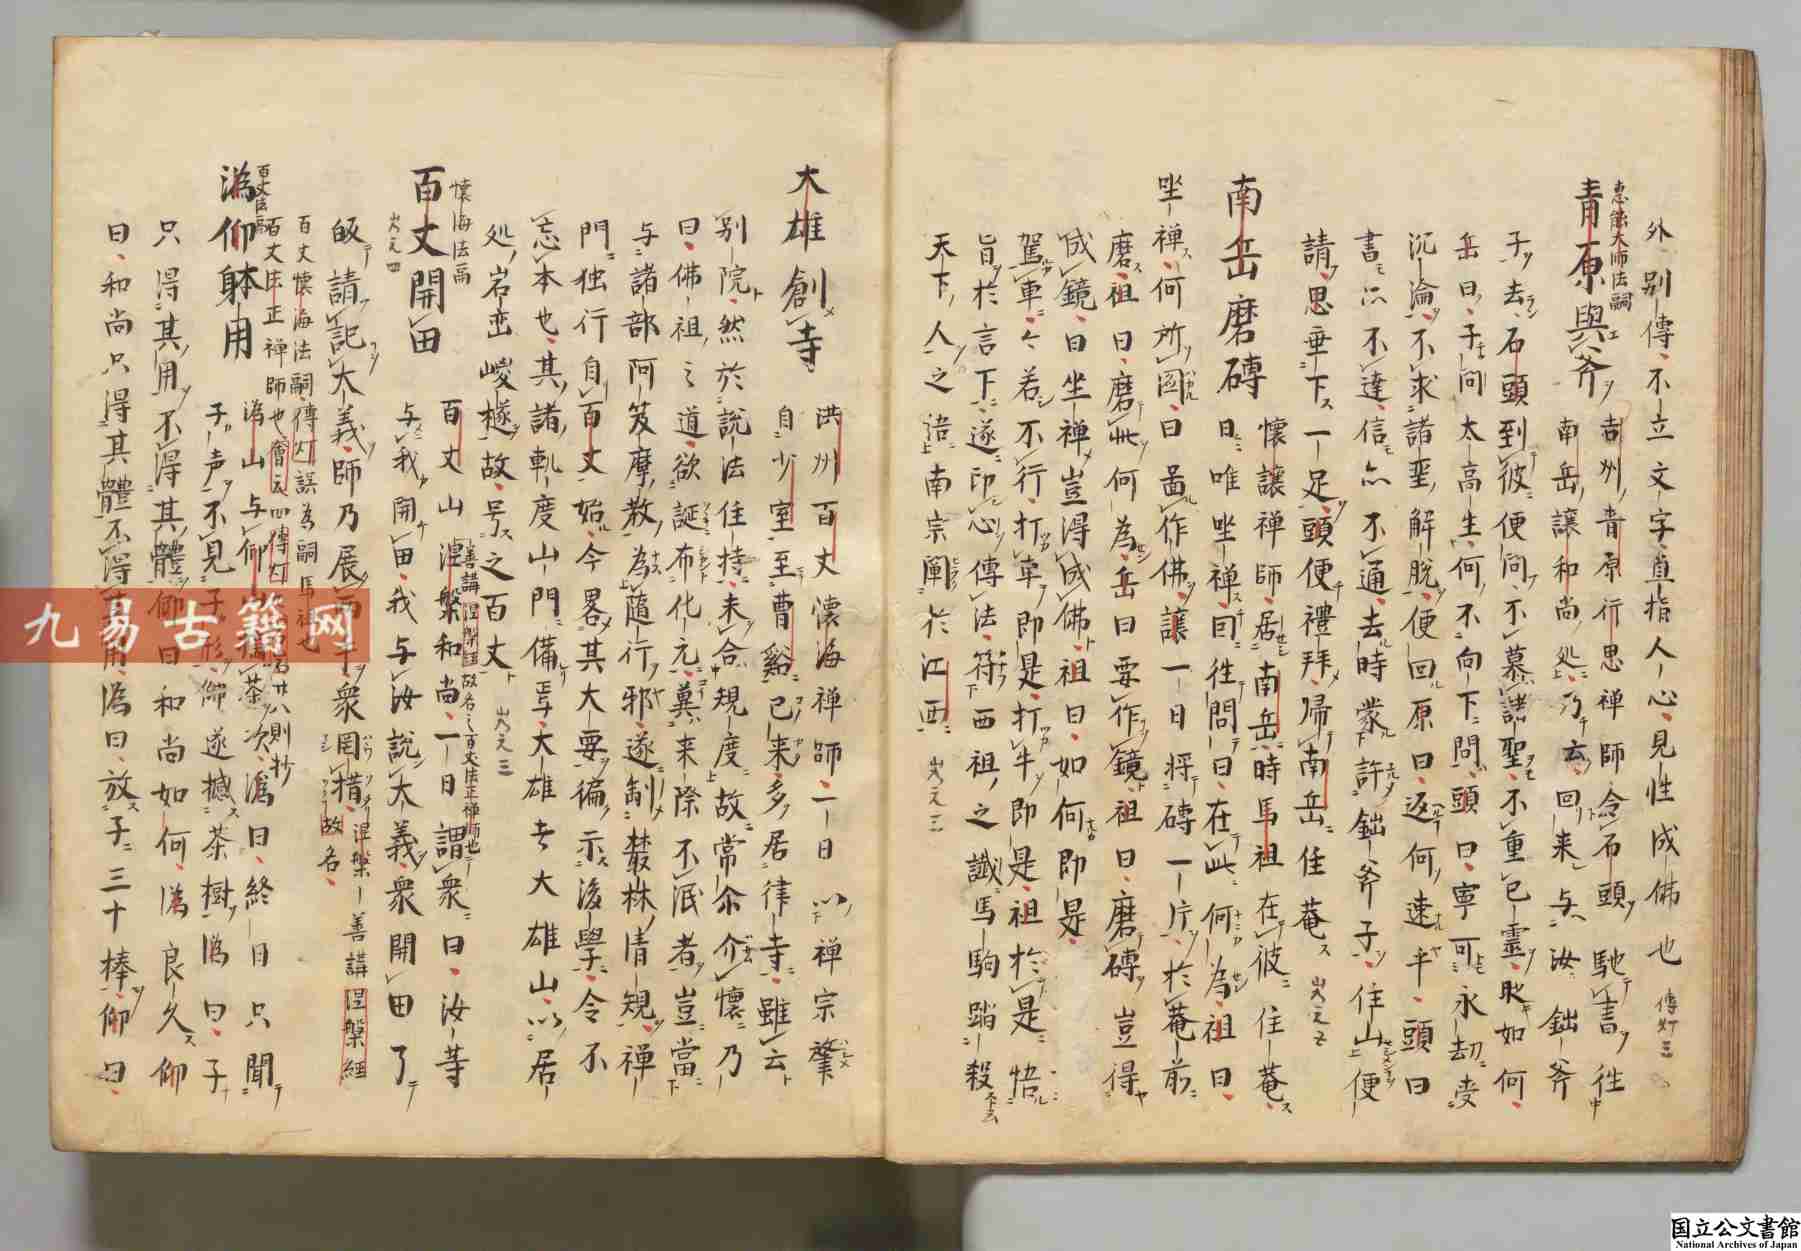 外別傳不立文字直指人心見性成佛也 傳灯三
惠能大師法嗣
青原與斧 吉州青原行思禅師令石頭馳書往
南岳讓和尚処乃云回来与汝鈯斧
子去石頭到彼便問不慕諸聖不重已霊時如何
岳曰子問太高生何不向下問頭曰寧可永劫受
沉淪不求諸聖解脱便回原曰返何速乎頭曰
書亦不達信亦不通去時蒙許鈯斧子住山便
請思垂下一足頭便禮拜帰南岳住菴
南岳磨磚 懐讓禅師居南岳時馬祖在彼住菴
日唯坐禅因往問曰在此何為祖曰
坐禅何所図曰啚作佛讓一日将磚一片於菴前
磨祖曰磨此何為岳曰要作鏡祖曰磨磚豈得
成鏡曰坐禅豈得成佛祖曰如何即是
駕車々若不行打車即是打牛即是祖於是悟
旨於言下遂印心傳法符西祖之讖馬駒踏殺
天下人之語南宗闡於江西
大雄創寺 洪州百丈懐海禅師一日以禅宗肇
自少室至曹谿已来多居律寺雖云
別院然於説法住持未合規度故常尓介懐乃
曰佛祖之道欲誕布化元冀来際不泯者豈當
与諸部阿笈摩教為隨行邪遂制叢林清規禅
門独行自百丈始今畧其大要徧示後學令不
忘本也其諸軌度山門備焉大雄者大雄山以居
処岩巒峻極故号之百丈
懐海法嗣
百丈開田 百丈山涅槃和尚一日謂衆曰汝等
与我開田我与汝説大義衆開田了
皈請記大義師乃展両手衆罔措 涅槃善講涅槃經故名
百丈懐海法嗣傳灯誤為嗣馬祖也
百丈法正禅師也
百丈法嗣
潙仰躰用 潙山与仰山摘茶次潙曰終日只聞
子声不見子形仰遂撼茶樹潙曰子
只得其用不得其體仰曰和尚如何潙良久仰
曰和尚只得其體不得其用潙曰放子三十棒仰曰
九易古籍网
国立公文書館
National Archives of Japan